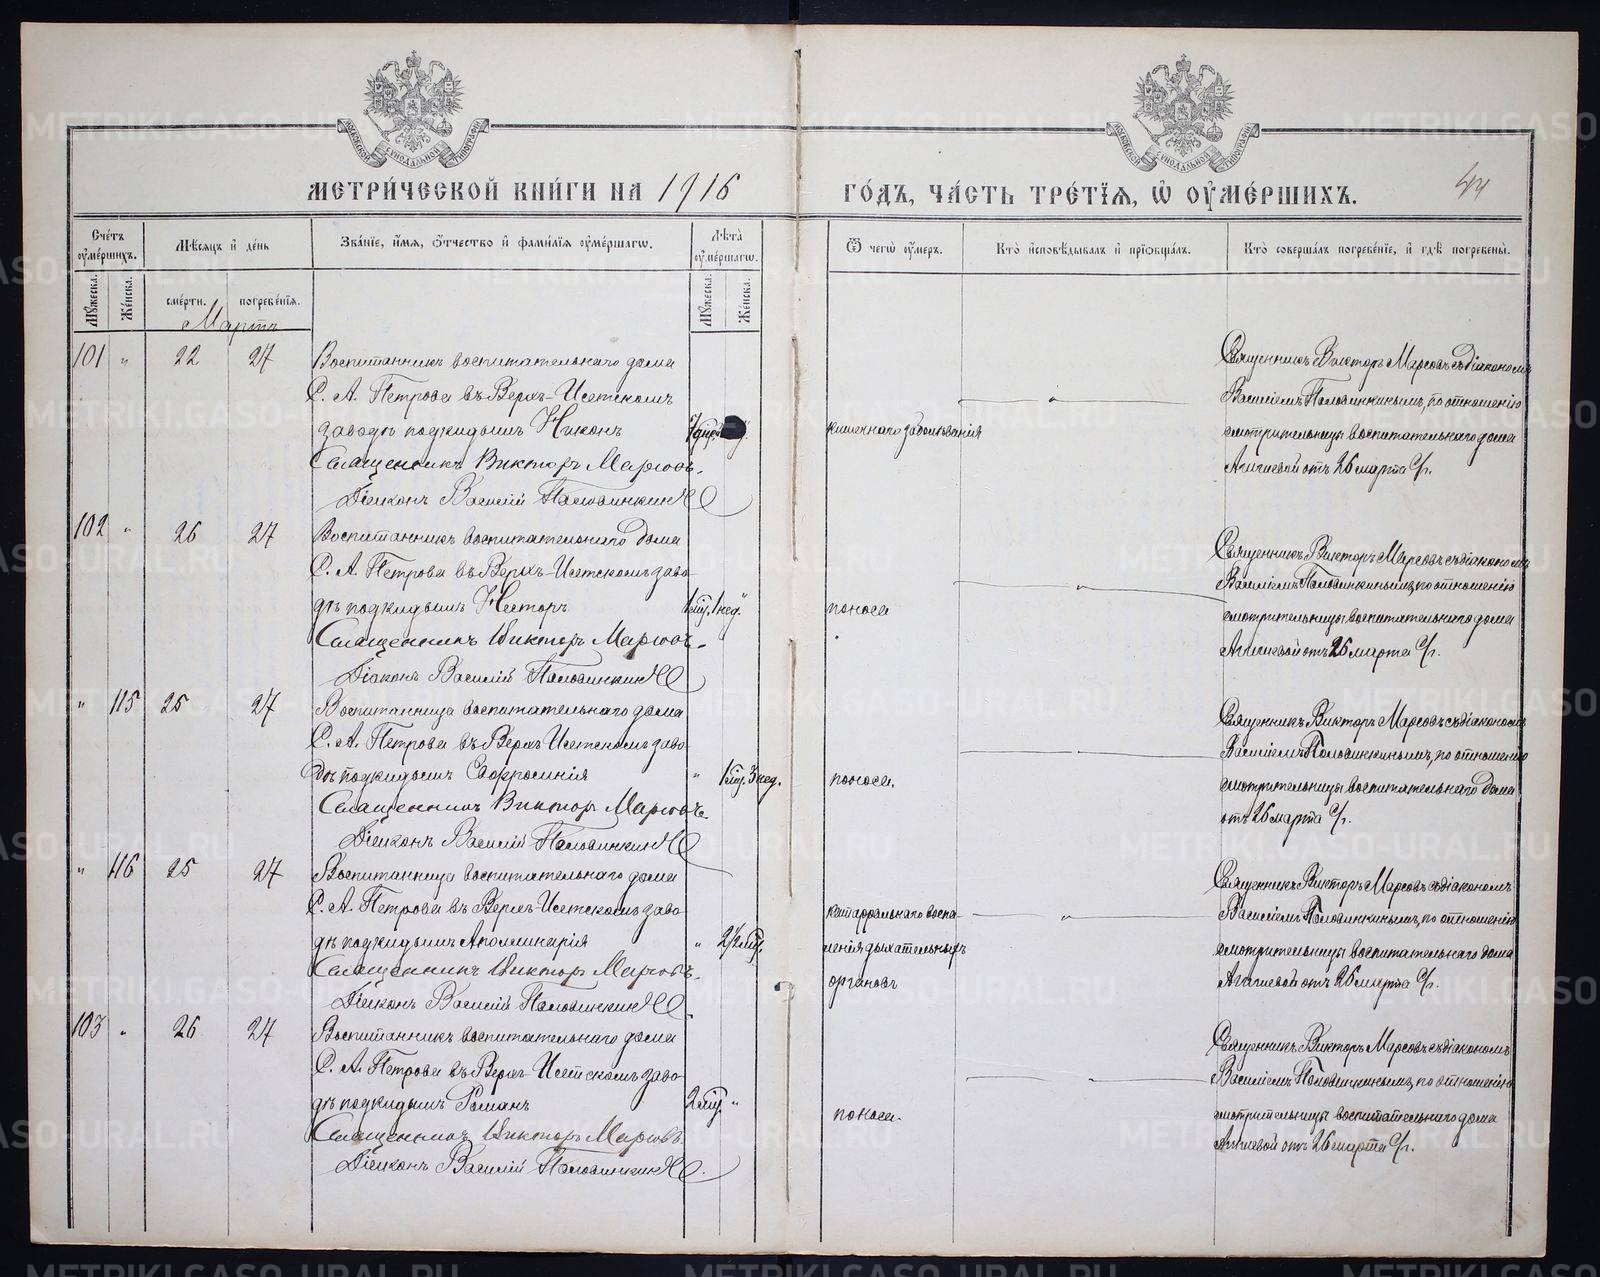 МЕТРИ́ЧЕСКОЙ КНИ́ГИ НА 1916
ГО́ДЪ, ЧА́СТЬ ТРЕ́ТЇЯ, Ѡ ОУМЕ́РШИХЪ.
44
Сче́тъ оуме́ршихъ.
Мѣ́сяцъ и де́нь
Зва́нїе, и́мя, о́тчество и фами́лїя оуме́ршагѡ.
Лѣ́та оуме́ршагѡ.
Ѿ чегѡ̀ оу́меръ.
Кто̀ и҆сповѣ́дывалъ и҆ прїѡбща́лъ.
Кто̀ соверша́лъ погребе́нїе, и҆ гдѣ̀ погребены̀.
Мꙋ́жеска.
Же́нска.
сме́рти.
погребе́нїя.
Мꙋ́жеска.
Же́нска.
Мартъ
101 " 22 27 Воспитанникъ воспитательнаго дома
С. А. Петрова въ Верхъ-Исетскомъ
заводѣ подкидышъ Никонъ
7 дне
Священникъ Викторъ Марсовъ.
Діаконъ Василій Половинкинъ
кишечнаго заболѣванія
"
Священникъ Викторъ Марсовъ съ діакономъ
Василіемъ Половинкинымъ, по отношенію
смотрительницы воспитательнаго дома
отъ 26 марта с/г.
102 " 26 27 Воспитанникъ воспитательнаго дома
С. А. Петрова въ Верхъ-Исетскомъ заво-
дѣ подкидышъ Несторъ
1 мѣс. 1 нед. "
Священникъ Викторъ Марсовъ.
Діаконъ Василій Половинкинъ
поноса
"
Священникъ Викторъ Марсовъ съ діакономъ
Василіемъ Половинкинымъ, по отношенію
смотрительницы воспитательнаго дома
отъ 26 марта с/г.
" 115 25 27 Воспитанница воспитательнаго дома
С. А. Петрова въ Верхъ-Исетскомъ заво-
дѣ подкидышъ Евфросинія
" 1 мѣс. 3 нед.
Священникъ Викторъ Марсовъ.
Діаконъ Василій Половинкинъ
поноса.
"
Священникъ Викторъ Марсовъ съ діакономъ
Василіемъ Половинкинымъ, по отношенію
смотрительницы воспитательнаго дома
отъ 26 марта с/г.
" 116 25 27 Воспитанница воспитательнаго дома
С. А. Петрова въ Верхъ-Исетскомъ заво-
дѣ подкидышъ Аполлинарія
" 2½ мѣс.
Священникъ Викторъ Марсовъ.
Діаконъ Василій Половинкинъ
катарральнаго воспа-
ленія дыхательныхъ
органовъ
"
Священникъ Викторъ Марсовъ съ діакономъ
Василіемъ Половинкинымъ, по отношенію
смотрительницы воспитательнаго дома
отъ 26 марта с/г.
103 " 26 27 Воспитанникъ воспитательнаго дома
С. А. Петрова въ Верхъ-Исетскомъ заво-
дѣ подкидышъ Романъ
2 мѣс. "
Священникъ Викторъ Марсовъ.
Діаконъ Василій Половинкинъ.
поноса.
"
Священникъ Викторъ Марсовъ съ діакономъ
Василіемъ Половинкинымъ, по отношенію
смотрительницы воспитательнаго дома
отъ 26 марта с/г.
METRIKI.GASO-URAL.RU